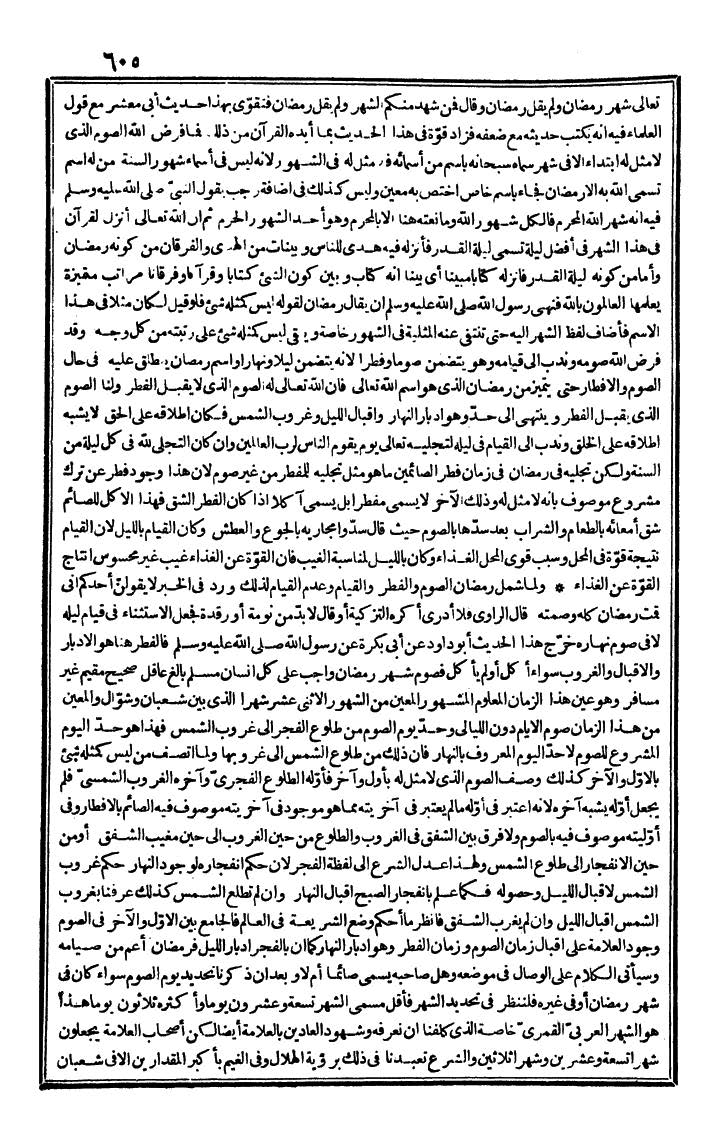 ٦٠٥
تعالى شهر رمضان ولم يقل رمضان وقال فمن شهد منكم الشهر ولم يقل رمضان فتقوّى بهذا حديث أبى معشر مع قول
العلماء فيه انه يكتب حديثه مع ضعفه فزاد قوّة فى هذا الحديث بما أيده القرآن من ذلك فما فرض الله الصوم الذى
لا مثل له ابتداء الا فى شهر سماه سبحانه باسم من أسمائه فلا مثل له فى الشهور لانه ليس فى أسماء شهور السنة من له اسم
تسمى الله به الا رمضان فجاء باسم خاص اختص به معين وليس كذلك فى اضافة رجب بقول النبىّ صلى الله عليه وسلم
فيه انه شهر الله المحرم فالكل شهور الله وما نعته هنا الا بالمحرم وهو أحد الشهور الحرم ثم ان الله تعالى أنزل القرآن
فى هذا الشهر فى أفضل ليلة تسمى ليلة القدر فأنزله فيه هدى للناس وبينات من الهدى والفرقان من كونه رمضان
وأما من كونه ليلة القدر فانزله كتابا مبينا أى بينا انه كتاب وبين كون الشئ كتابا وقرآنا وفرقانا مراتب متميزة
يعلمها العالمون بالله فنهى رسول الله صلى الله عليه وسلم ان يقال رمضان لقوله ليس كمثله شئ فلو قيل لكان مثلا فى هذا
الاسم فأضاف لفظ الشهر اليه حتى تنتفى عنه المثلية فى الشهور خاصة ويبقى ليس كمثله شئ على رتبته من كل وجه وقد
فرض الله صومه وندب الى قيامه وهو يتضمن صوما وفطرا لانه يتضمن ليلا ونهارا واسم رمضان ينطلق عليه فى حال
الصوم والافطار حتى يتميز من رمضان الذى هو اسم الله تعالى فان الله تعالى له الصوم الذى لا يقبل الفطر ولنا الصوم
الذى يقبل الفطر وينتهى الى حدّ وهو ادبار النهار واقبال الليل وغروب الشمس فكان اطلاقه على الحق لا يشبه
اطلاقه على الخلق وندب الى القيام فى ليله لتجليه تعالى يوم يقوم الناس لرب العالمين وان كان التجلى لله فى كل ليلة من
السنة ولكن تجليه فى رمضان فى زمان فطر الصائمين ما هو مثل تجليه للمفطر من غير صوم لان هذا وجود فطر عن ترك
مشروع موصوف بانه لا مثل له وذلك الآخر لا يسمى مفطرا بل يسمى آكلا اذا كان الفطر الشق فهذا الاكل للصائم
شق أمعائه بالطعام والشراب بعد سدّها بالصوم حيث قال سدّوا مجاريه بالجوع والعطش وكان القيام بالليل لان القيام
نتيجة قوّة فى المحل وسبب قوى المحل الغذاء وكان بالليل لمناسبة الغيب فان القوّة عن الغذاء غيب غير محسوس انتاج
القوّة عن الغذاء * ولما شمل رمضان الصوم والفطر والقيام وعدم القيام لذلك ورد فى الخبر لا يقولنّ أحدكم انى
قمت رمضان كله وصمته قال الراوى فلا أدرى أكره التزكية أو قال لا بدّ من نومة أو رقدة فجعل الاستثناء فى قيام ليله
لا فى صوم نهاره خرّج هذا الحديث أبو داود عن أبى بكرة عن رسول الله صلى الله عليه وسلم فالفطر هنا هو الادبار
والاقبال والغروب سواء أكل أو لم يأكل فصوم شهر رمضان واجب على كل انسان مسلم بالغ عاقل صحيح مقيم غير
مسافر وهو عين هذا الزمان المعلوم المشهور المعين من الشهور الاثنى عشر شهرا الذى بين شعبان وشوّال والمعين
من هذا الزمان صوم الايام دون الليالى وحدّ يوم الصوم من طلوع الفجر الى غروب الشمس فهذا هو حدّ اليوم
المشروع للصوم لا حدّ اليوم المعروف بالنهار فان ذلك من طلوع الشمس الى غروبها ولما اتصف من ليس كمثله شئ
بالاوّل والآخر كذلك وصف الصوم الذى لا مثل له بأول وآخر فأوّله الطلوع الفجرىّ وآخره الغروب الشمسىّ فلم
يجعل أوّله يشبه آخره لانه اعتبر فى أوّله ما لم يعتبر فى آخريته مما هو موجود فى آخريته موصوف فيه الصائم بالافطار وفى
أوّليته موصوف فيه بالصوم ولا فرق بين الشفق فى الغروب والطلوع من حين الغروب الى حين مغيب الشفق أو من
حين الانفجار الى طلوع الشمس ولهذا عدل الشرع الى لفظة الفجر لان حكم انفجاره لوجود النهار حكم غروب
الشمس لاقبال الليل وحصوله فكما علم بانفجار الصبح اقبال النهار وان لم تطلع الشمس كذلك عرفنا بغروب
الشمس اقبال الليل وان لم يغرب الشفق فانظر ما أحكم وضع الشريعة فى العالم فالجامع بين الاوّل والآخر فى الصوم
وجود العلامة على اقبال زمان الصوم وزمان الفطر وهو ادبار النهار كما ان بالفجر ادبار الليل فرمضان أعم من صيامه
وسيأتى الكلام على الوصال فى موضعه وهل صاحبه يسمى صائما أم لا وبعد ان ذكرنا تحديد يوم الصوم سواء كان فى
شهر رمضان أو فى غيره فلننظر فى تحديد الشهر فأقل مسمى الشهر تسعة وعشرون يوما وأكثره ثلاثون يوما هذا
هو الشهر العربىّ القمرىّ خاصة الذى كلفنا ان نعرفه وشهود العادين بالعلامة أيضا لكن أصحاب العلامة يجعلون
شهرا تسعة وعشرين وشهرا ثلاثين والشرع تعبدنا فى ذلك برؤية الهلال وفى الغيم بأكبر المقدارين الا فى شعبان